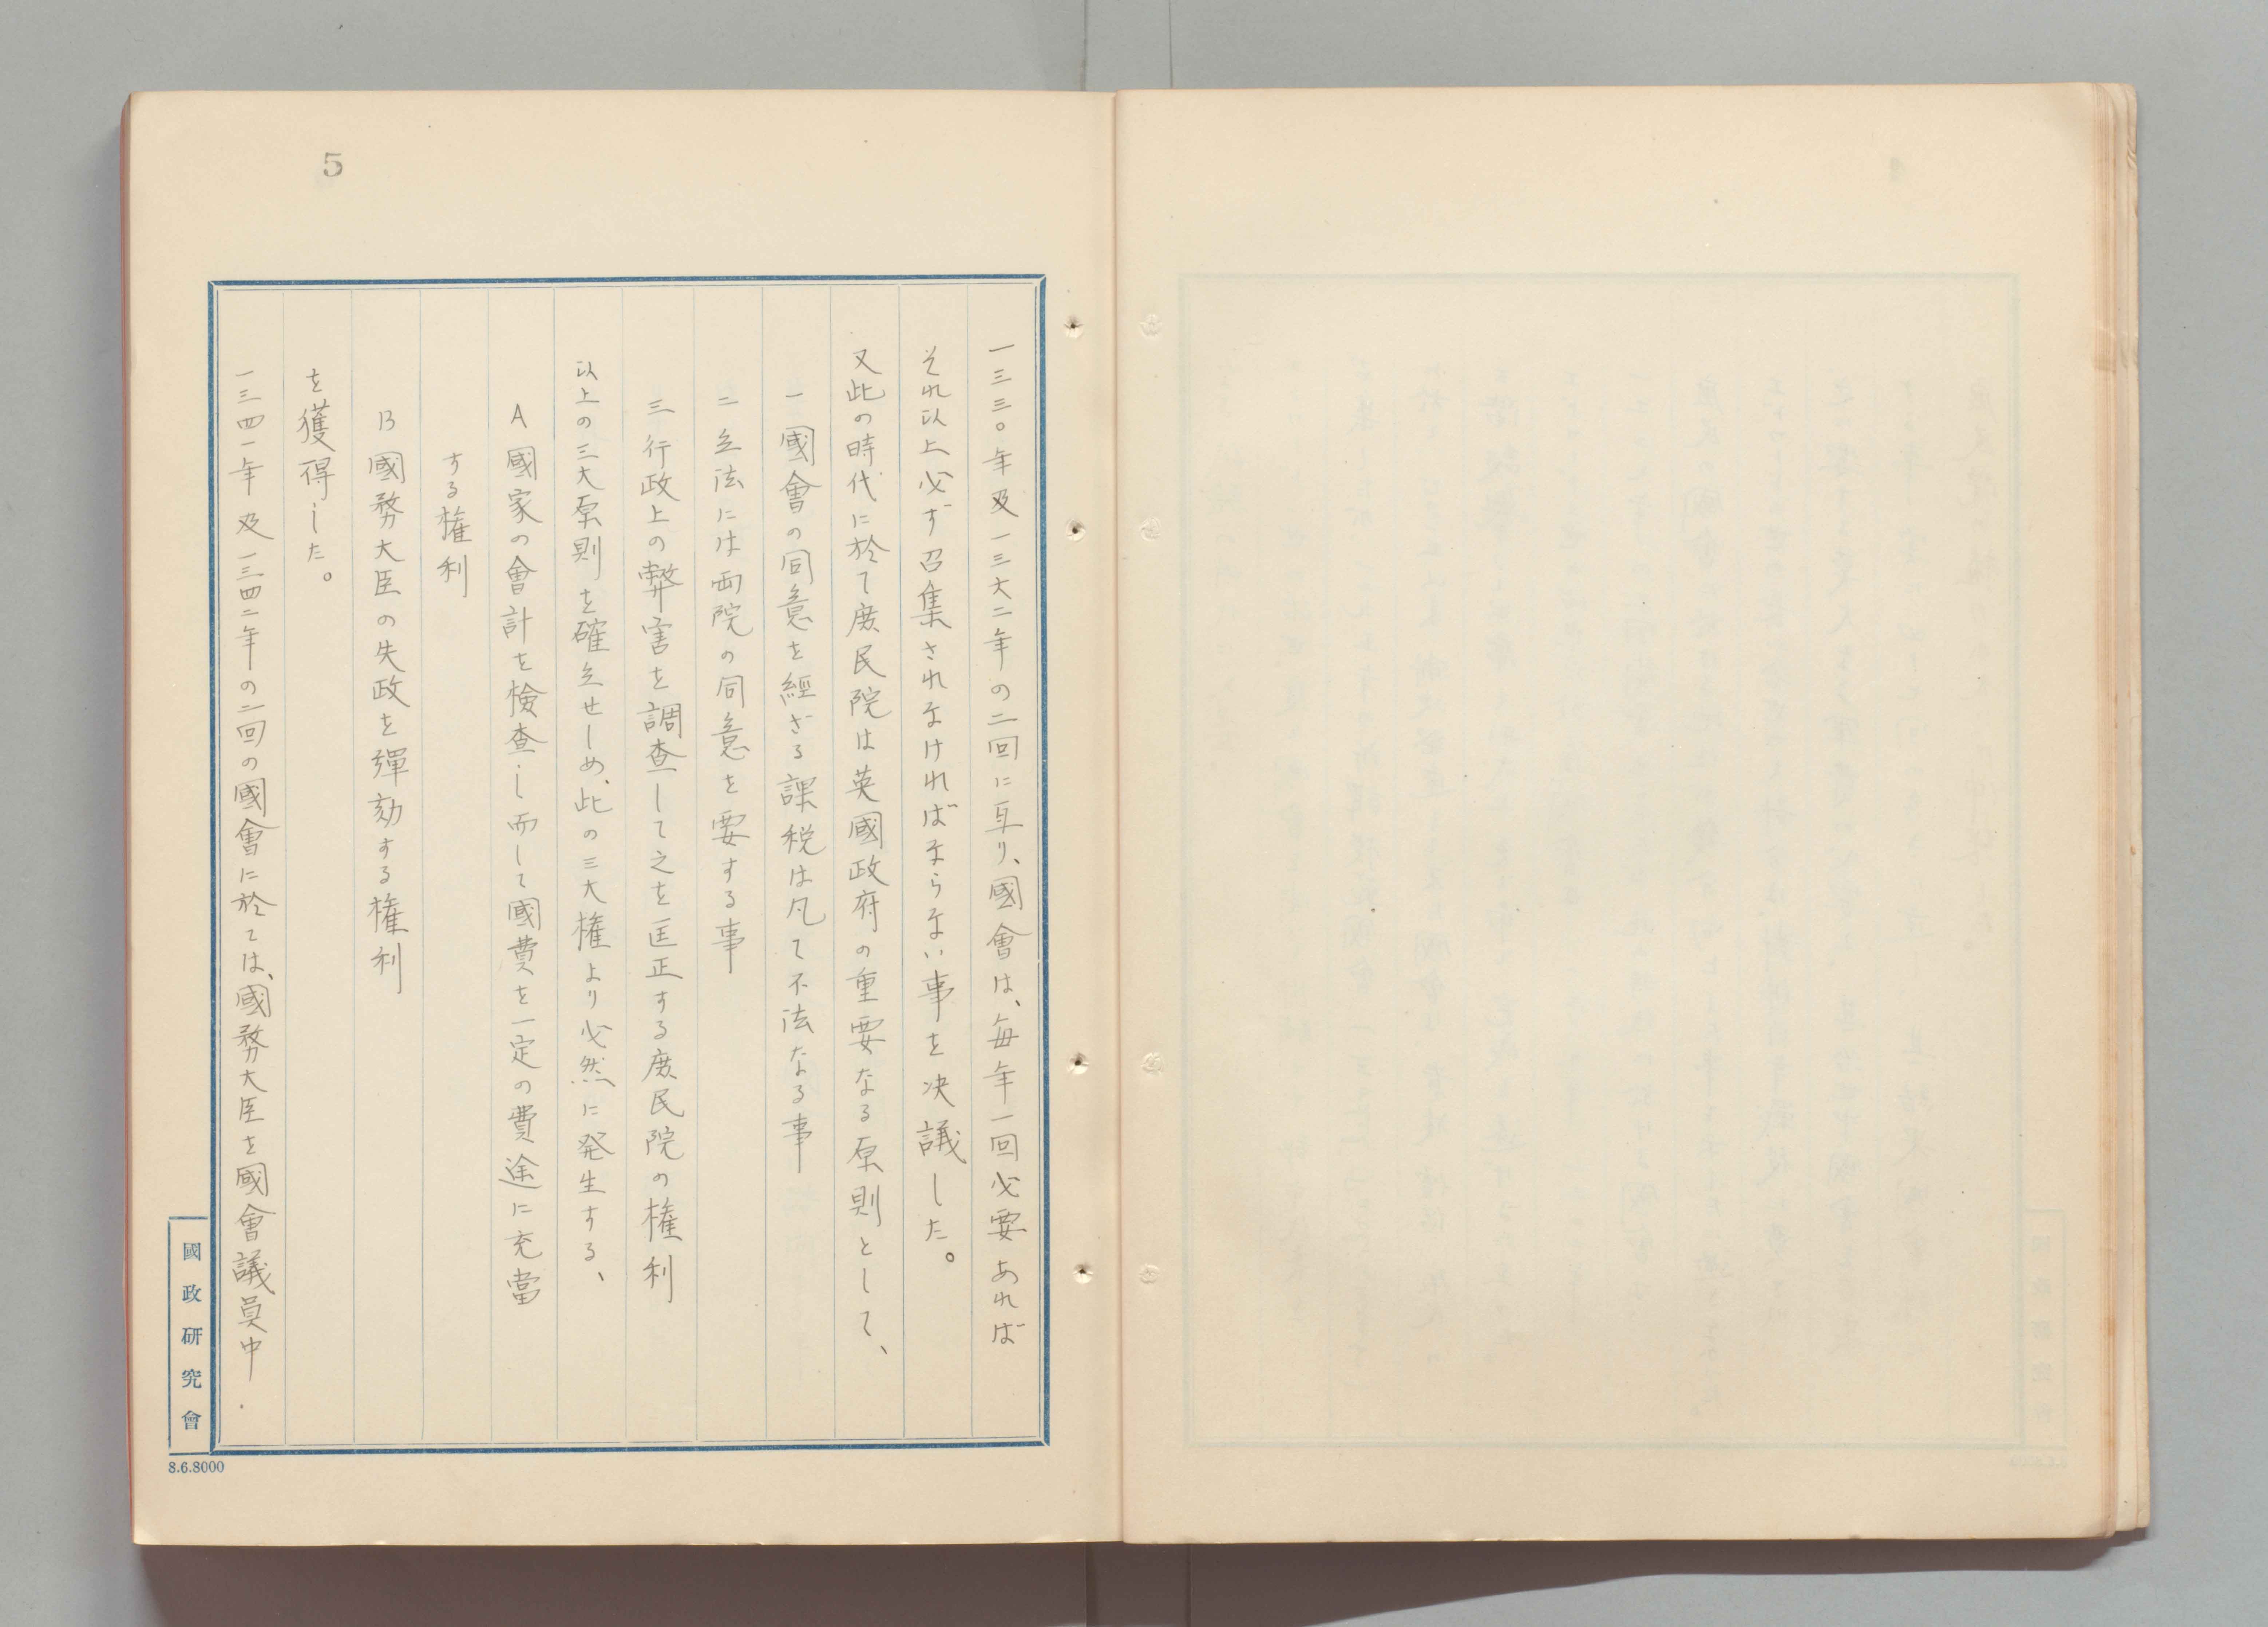 5
一三三〇年及一三六二年の二回に亙り、國會は、毎年一回必要あれば
それ以上必ず召集されなければならない事を決議した。
又此の時代に於て庶民院は英國政府の重要なる原則として、
一 國會の同意を經ざる課税は凡て不法なる事
二 立法には両院の同意を要する事
三 行政上の弊害を調査して之を匡正する庶民院の権利
以上の三大原則を確立せしめ、此の三大権より必然に発生する、
A 國家の會計を檢査し而して國費を一定の費途に充當
する権利
B 國務大臣の失政を彈劾する権利
を獲得した。
一三四一年及一三四二年の二回の國會に於ては、國務大臣を國會議員中
國政研究會
8.6.8000